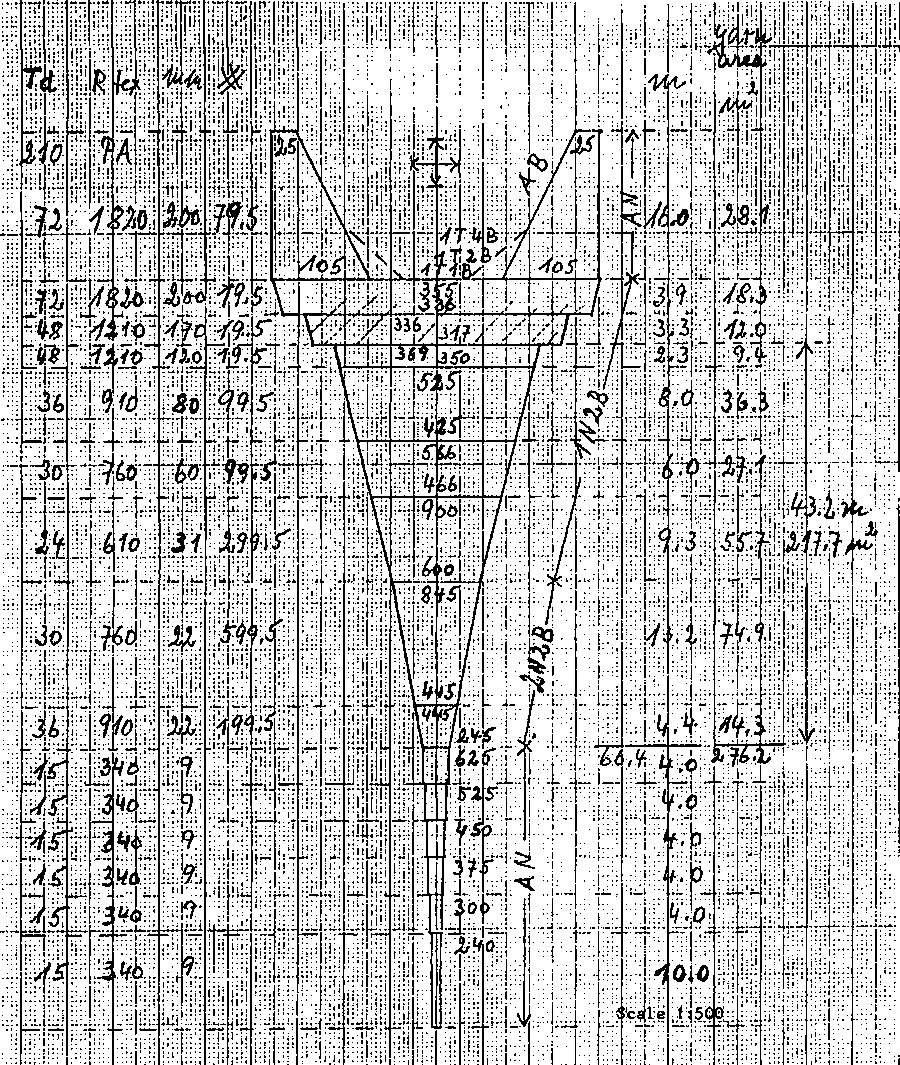 yarn
area
Td R tex mm m m²
210 PA 25 25
AB
AN
72 1820 200 79.5 1T4B 16.0 28.1
1T2B
105 1T1B 105
72 1820 200 19.5 355 3.9 18.3
336
48 1210 170 19.5 336 317 3.3 12.0
48 1210 120 19.5 369 350 2.3 9.4
525
36 910 80 99.5 8.0 36.3
1N2B
425
566
30 760 60 99.5 6.0 27.1
466
900
43.2 m
24 610 31 299.5 9.3 55.7 217.7 m²
600
845
30 760 22 599.5 2N2B 13.2 74.9
445
445
36 910 22 199.5 4.4 14.3
245
15 340 9 625 66.4 4.0 276.2
15 340 9 525 4.0
15 340 9 450 4.0
15 340 9 375 AN 4.0
15 340 9 300 4.0
240
15 340 9 10.0
Scale 1:500